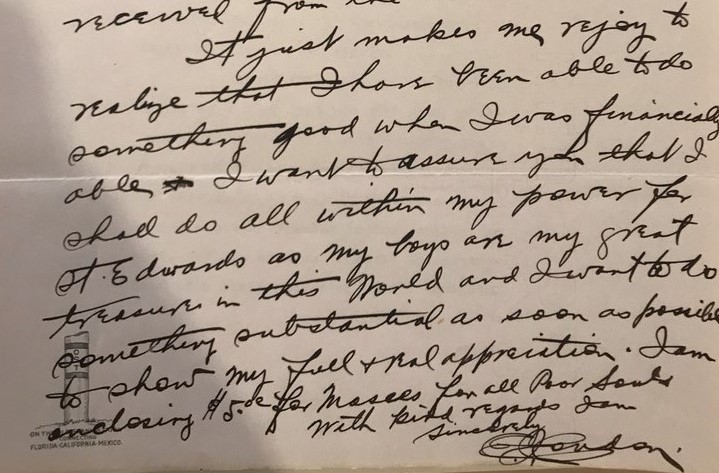 received from the
It just makes me rejoy to
realize that I have been able to do
something good when I was financially
able I want to assure you that I
shall do all within my power for
St. Edwards as my boys are my great
treasure in this World and I want to do
something substantial as soon as possible
to show my full & real appreciation. I am
enclosing $5.00 for Masses for all Poor Souls
With kind regards I am
Sincerely
ON THE
CONNECTING
FLORIDA-CALIFORNIA-MEXICO.